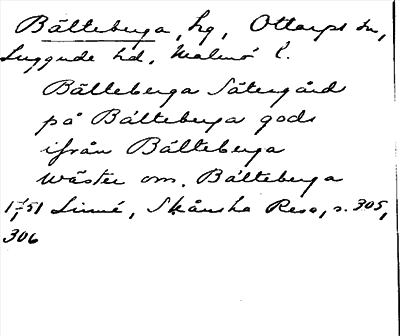 Bälteberga, hg, Ottarps sn,
Luggude hd, Malmö l.
Bälteberga Sätergård
på Bälteberga gods
ifrån Bälteberga
wäster om. Bälteberga
1751 Linné, Skånska Resa, s. 305,
306